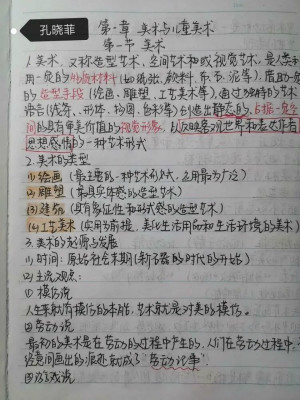 孔晓菲
第一章 美术与儿童美术
第一节 美术
1.美术，又称造型艺术、空间艺术和或视觉艺术，是人类利
用一定的物质材料（如纸张、颜料、布、石、泥等），借助一定
的造型手段（绘画、雕塑、工艺美术等），通过独特的艺术
语言（线条、形体、构图、色彩等）创造出静态的、占据一定空
间的具有审美价值的视觉形象，以反映客观世界和表达作者
思想感情的一种艺术形式
2.美术的类型
(1)绘画（最主要的一种艺术形式，应用最为广泛）
(2)雕塑（最具实体感的造型艺术）
(3)建筑（具有象征性和形式感的造型艺术）
(4)工艺美术（实用为前提，美化生活用品和生活环境的美术）
3.美术的起源与发展
(1)时间：原始社会末期（新石器的时代的开始）
(2)主流观点：
①模仿说
人生来就有模仿的本能，艺术就是对美的模仿。
②劳动说
最初的美术是在劳动的过程中产生的，人们在劳动过程中
经意间画出的痕迹就成了“劳动记事”
③游戏说